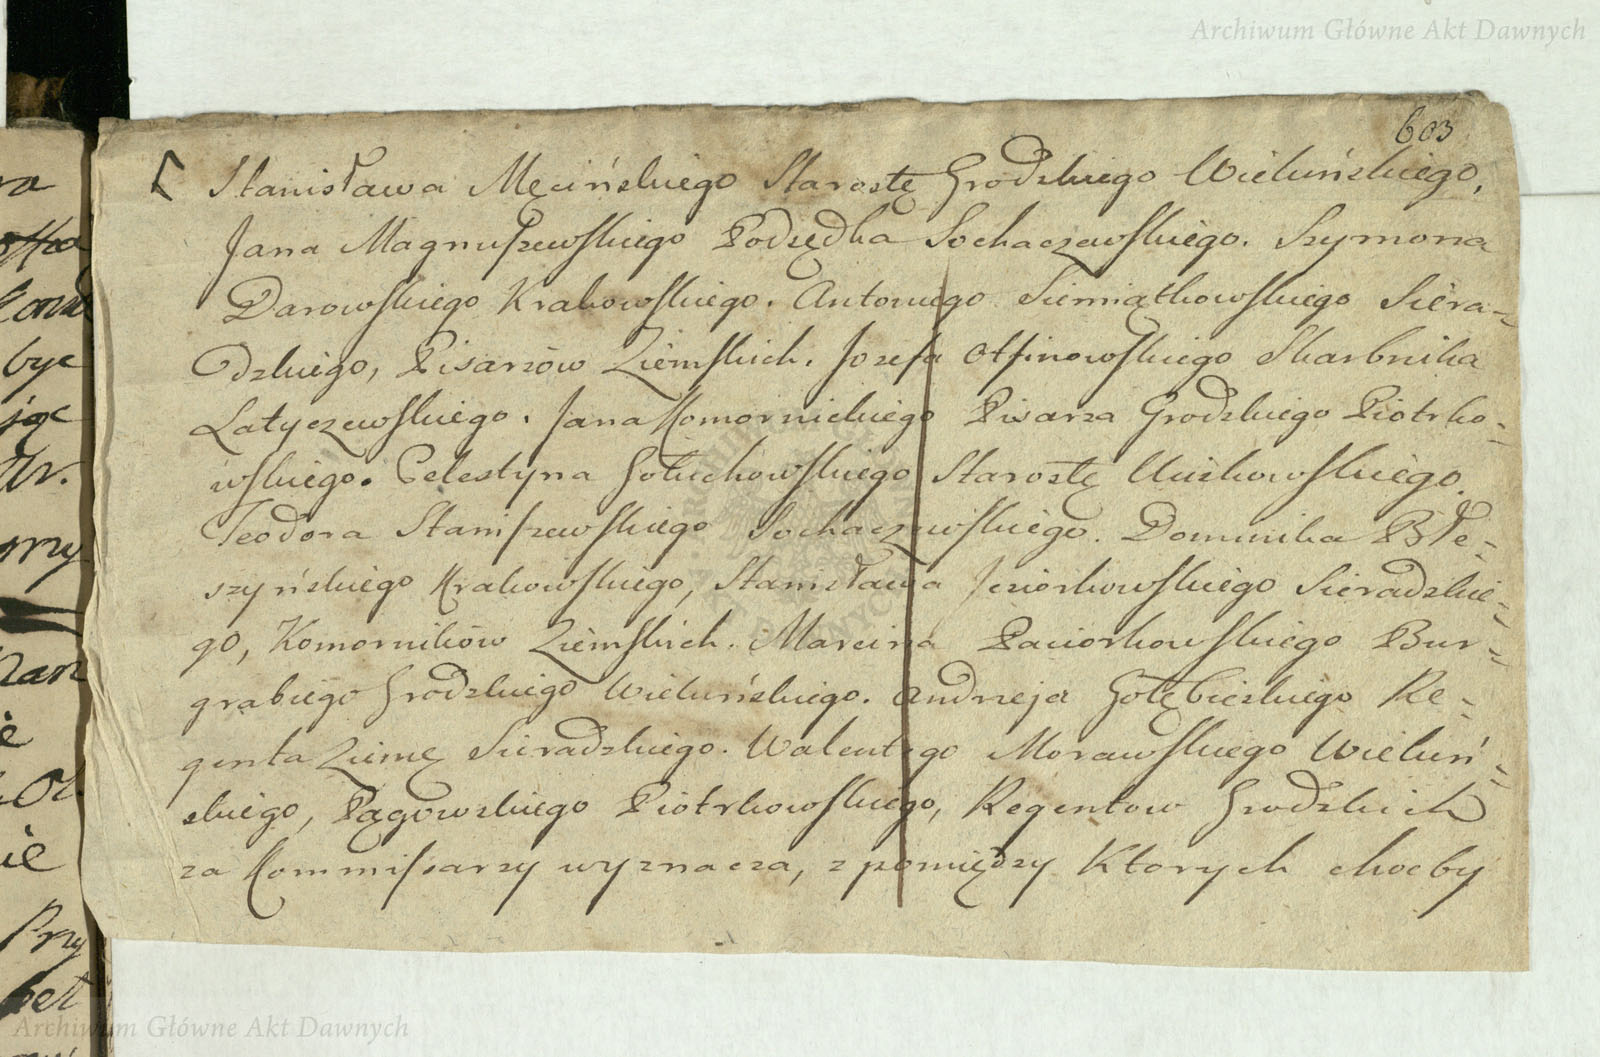 Archiwum Główne Akt Dawnych
603
Stanisława Męcińskiego Starostę Grodzkiego Wieluńskiego,
Jana Magnuszewskiego Podsędka Sochaczewskiego. Szymona
Darowskiego Krakowskiego. Antoniego Siemiątkowskiego Siera=
dzkiego, Pisarzów Ziemskich. Jozefa Ossinowskiego Skarbnika
Latyczewskiego. Jana Komornickiego Pisarza Grodzkiego Piotrko=
wskiego. Celestyna Gołuchowskiego Starostę
Teodora Staniszewskiego Sochaczewskiego. Dominika Błe=
szyńskiego Krakowskiego, Stanisława Jeziorkowskiego Sieradzkie=
go, Komorników Ziemskich. Marcina Paciorkowskiego Bur=
grabiego Grodzkiego Wieluńskiego. Andrzeja Gołębieskiego Re=
genta Ziemę Sieradzkiego. Walentego Morawskiego Wieluń=
skiego, Pągowskiego Piotrkowskiego, Regentow Grodzkich
za Kommissarzy wyznacza, z pomiędzy Ktorych choćby
ra
być
jąc
przy
ie
Przy
Archiwum Główne Akt Dawnych